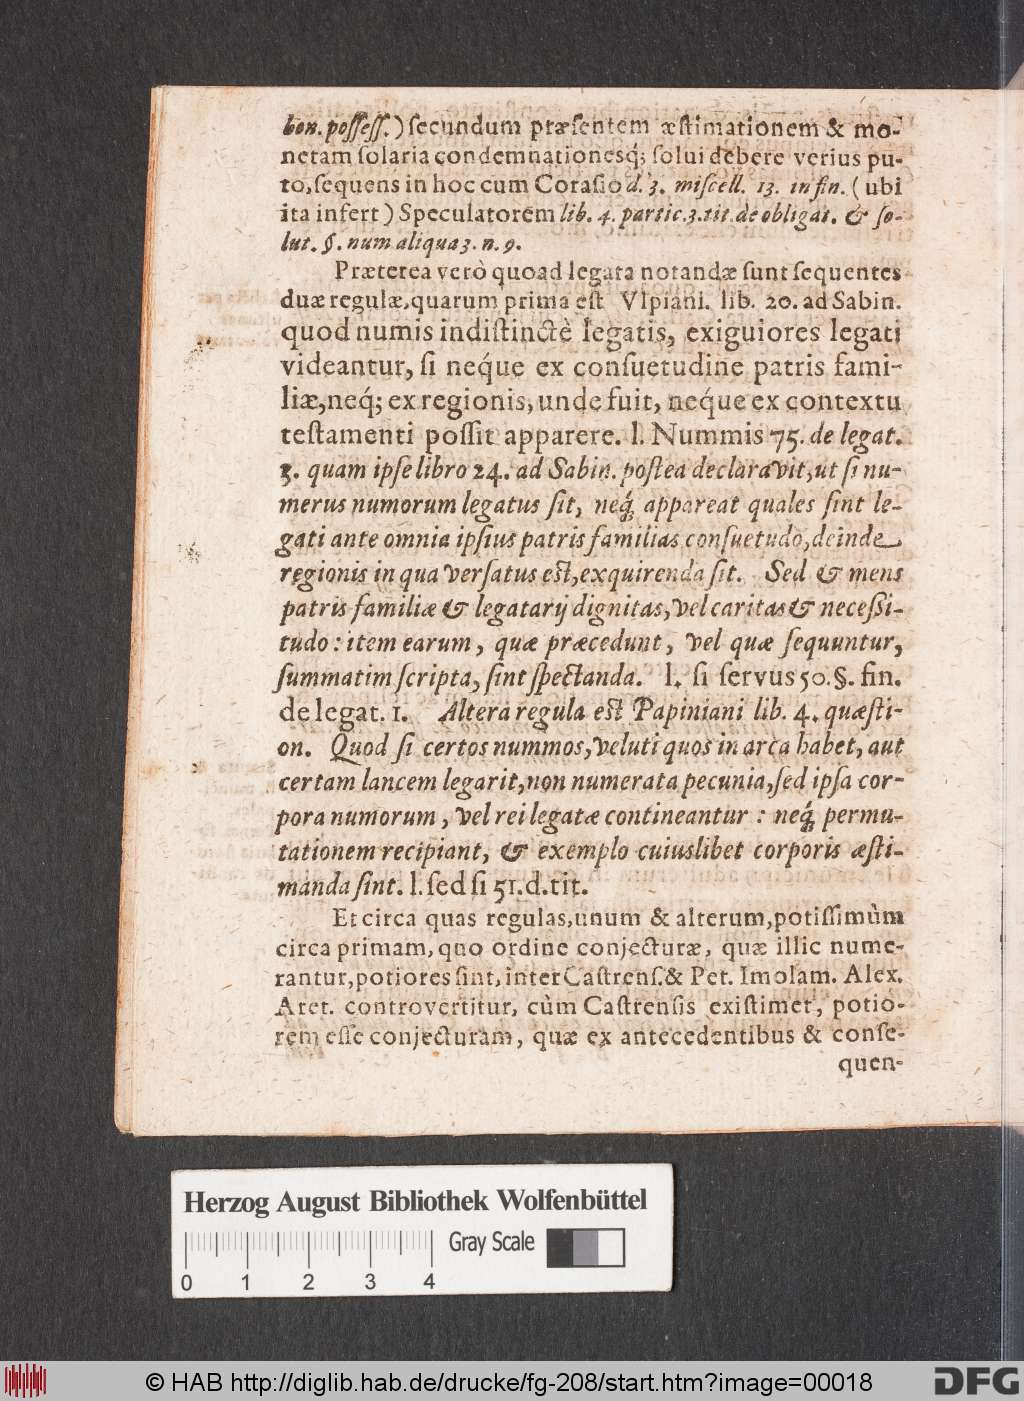 bon. poſſeſſ.) ſecundum præſentem æſtimationem & mo-
netam ſolaria condemnationesq́; ſolui debere verius pu-
to, ſequens in hoc cum Coraſio d. 3. miſcell. 13. in fin. (ubi
ita infert) Speculatorem lib. 4. partic. 3. tit. de obligat. & ſo-
lut. §. num aliqua 3. n. 9.
Præterea verò quoad legata notandæ ſunt ſequentes
duæ regulæ, quarum prima eſt Vlpiani. lib. 20. ad Sabin.
quod numis indiſtinctè legatis, exiguiores legati
videantur, ſi neq́ue ex conſuetudine patris fami-
liæ, neq́; ex regionis, unde fuit, neq́ue ex contextu
teſtamenti poſſit apparere. l. Nummis 75. de legat.
3. quam ipſe libro 24. ad Sabin. poſtea declaravit, ut ſi nu-
merus numorum legatus ſit, neq́; appareat quales ſint le-
gati ante omnia ipſius patris familias conſuetudo, deinde
regionis in qua verſatus eſt, exquirenda ſit. Sed & mens
patris familiæ & legatarij dignitas, vel caritas & neceſſi-
tudo: item earum, quæ præcedunt, vel quæ ſequuntur,
ſummatim ſcripta, ſint ſpectanda. l. ſi ſervus 50. §. fin.
de legat. 1. Altera regula eſt Papiniani lib. 4. quæſti-
on. Quod ſi certos nummos, veluti quos in arca habet, aut
certam lancem legarit, non numerata pecunia, ſed ipſa cor-
pora numorum, vel rei legatæ contineantur: neq́; permu-
tationem recipiant, & exemplo cuiuslibet corporis æſti-
manda ſint. l. ſed ſi 51. d. tit.
Et circa quas regulas, unum & alterum, potiſſimùm
circa primam, quo ordine conjecturæ, quæ illic nume-
rantur, potiores ſint, inter Caſtrenſ. & Pet. Imolam. Alex.
Aret. controvertitur, cùm Caſtrenſis exiſtimet, potio-
rem eſſe conjecturam, quæ ex antecedentibus & conſe-
quen-
Herzog August Bibliothek Wolfenbüttel
Gray Scale
0 1 2 3 4
© HAB http://diglib.hab.de/drucke/fg-208/start.htm?image=00018
DFG